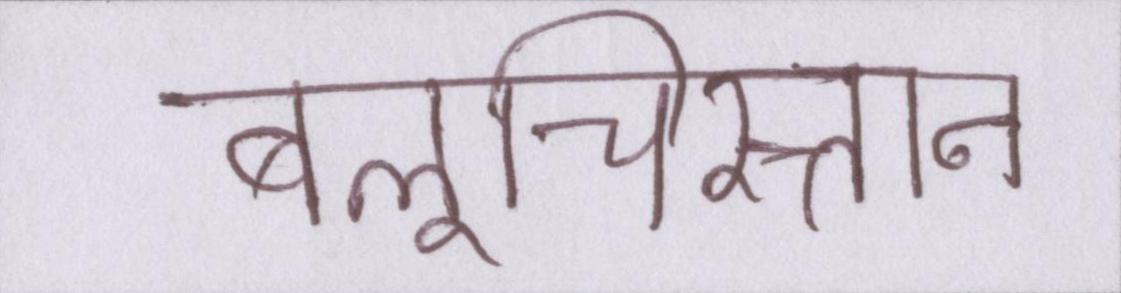 बलूचिस्तान